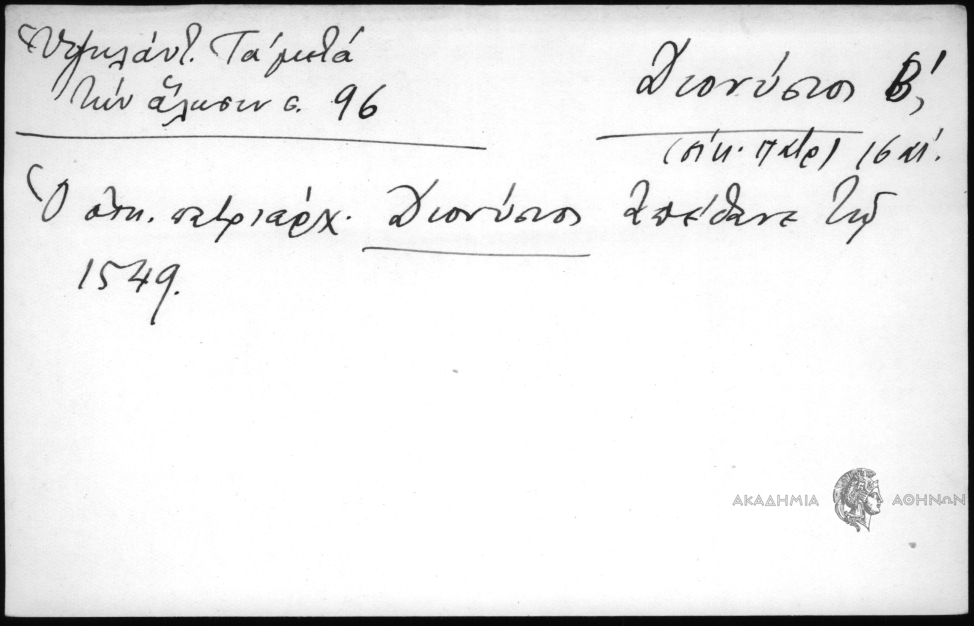 Ὑψηλάντ. Τά μετά
τήν ἅλωσιν σ. 96
Διονύσιος Β΄,
(οἰκ. πατρ) 16 αἰ.
Ὁ οἰκ. πατριάρχ. Διονύσιος ἀπέθανε τῷ
1549.
ΑΚΑΔΗΜΙΑ ΑΘΗΝΩΝ